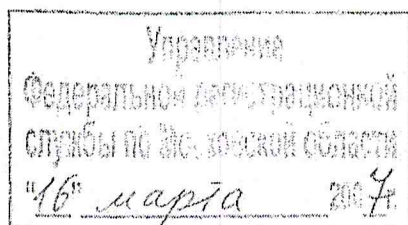 Управление
Федеральной регистрационной
службы по Московской области
"16" марта 2007г.